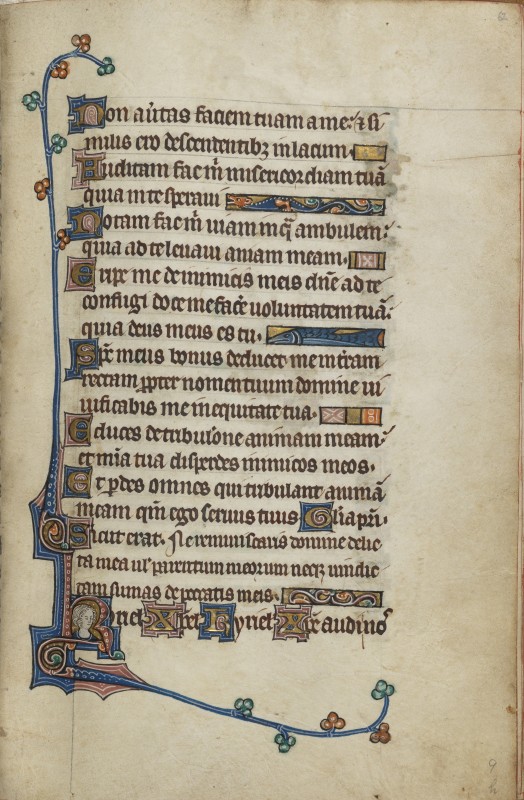 Non au'tas faciem tuam a me: ⁊ si
milis ero descendentibꝫ in lacum.
Auditam fac m̄ misericordiam tuā
quia in te speraui
Notam fac m̄ uiam in q̄ ambulem:
quia ad te leuaui animam meam.
Eripe me de inimicis meis dn̄e ad te
confugi doce me facē uoluntatem tuā:
quia deus meus es tu.
Sp̄c meus bonus deducet me in t̄ram
rectam ꝓpter nomen tuum domine ui
uificabis me in equitate tua.
Educes de tribul'one animam meam:
et mīa tua disperdes inimicos meos.
Et ꝑdes omnes qui tribulant animā
meam qm̄ ego seruus tuus Glīa pr̄i.
Sicut erat. Ne reminiscaris domine delic
ta mea uł parentum meorum neqꝫ uindic
tam sumas de peccatis meis.
Kyriel Xp̄el Kyriel Xp̄e audi nos